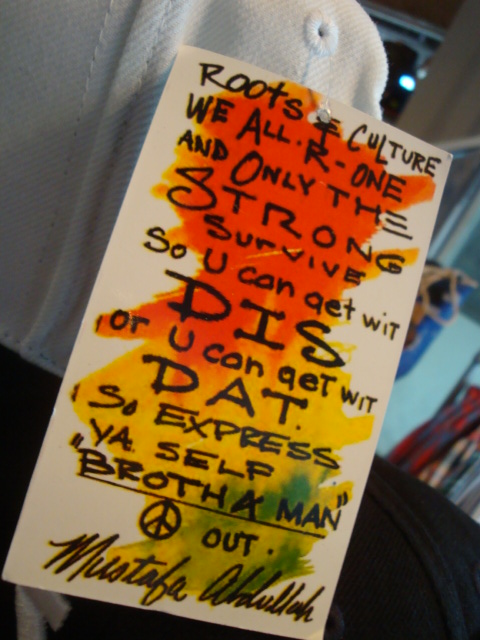 ROOTS & CULTURE
WE ALL. R-ONE
AND ONLY THE
STRONG
SURVIVE
SO U can get wit
DIS
OR U can get wit
DAT.
So EXPRESS
YA SELF
"BROTHA MAN"
☮ OUT.
Mustafa Abdullah